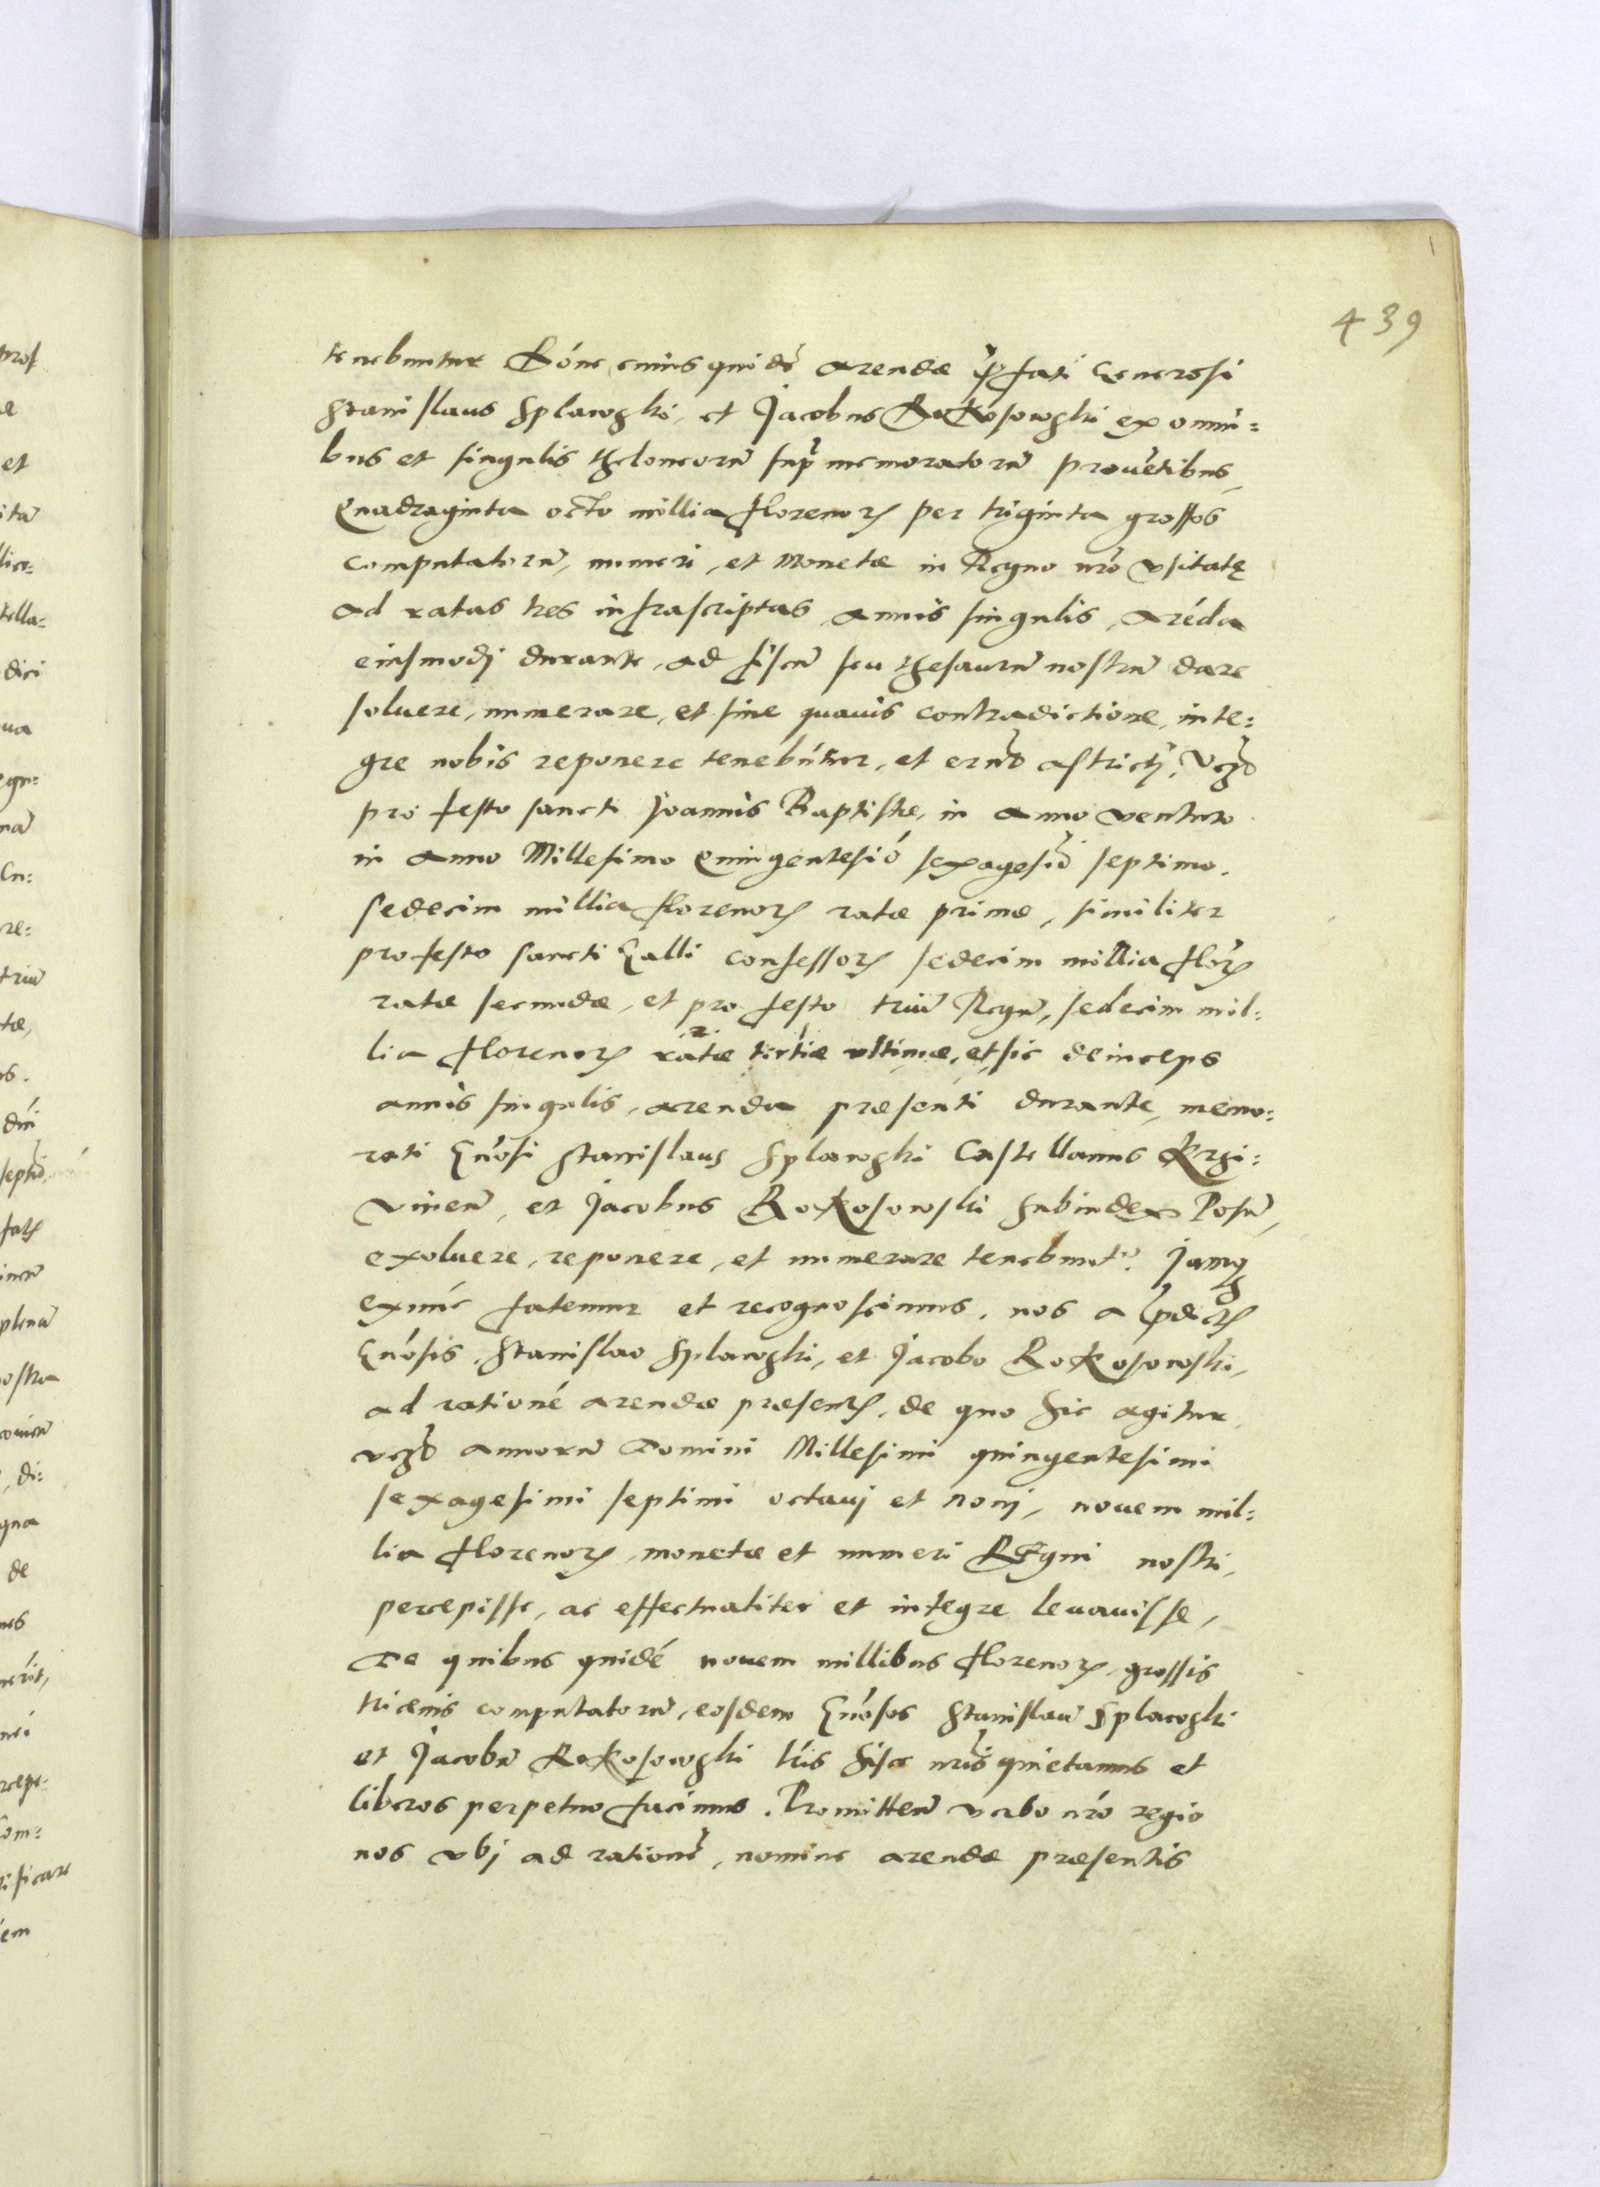 439
tenebuntur Róne cuius quidē arendæ p̄fati Generosi
Stanislaus Splawsky et Jacobus Rokosowsky ex omni:
bus et singulis theloneorū supr̄ memoratorū prouētibus,
Quadraginta octo millia florenorꝝ per triginta grossos
computatorū, numeri, et Monetæ in Regno nr̄o vsitatę
ad ratas tres infrascriptas annis singulis, aréda
eiusmodj durante, ad fiscū seu thesaurū nostrū dare
soluere, numerare, et sine quauis contradictione, inte:
gre nobis reponere tenebúntur, et erūt astrictj,
pro festo sancti Joannis Baptistæ, in anno venturo
in anno Millesimo Quingentesió sexagesīo septimo.
sedecim millia florenorꝝ ratæ primæ, similiter
pro festo sancti Galli confessorꝝ sedecim millia flor̄ꝝ
ratæ secundæ, et pro festo triū Regū, sedecim mil:
lia florenorꝝ ratæ tertiæ vltimæ, et sic deinceps
annis singulis, arenda præsenti durante, memo:
rati Gn̄osi Stanislaus Splawsky Castellanus Krzi:
vinen̄, et Jacobus Rokosowski Subiudex Posn̄,
exoluere, reponere, et numerare tenebunt̄. Jamꝗ
exnúc fatemur et recognoscimus, nos a p̄dictꝭ
Gn̄osis, Stanislao Splawsky, et Jacobo Rokosowski,
ad rationé arendæ præsentꝭ, de quo hic agitur,
annorū Domini Millesimi quingentesimi
sexagesimi septimi octauj et nonj, nouem mil:
lia florenorꝝ, monetæ et numeri Regni nostri,
percepisse, ac effectualiter et integre leuauisse,
De quibus quidé nouem millibus florenorꝝ, grossis
tricenis computatorū, eosdem Gn̄osos Stanislaū Splawsky
et Jacobū Rokosowsky tr̄is hisce nr̄is quietamus et
liberos perpetuo facimus. Promitten̄ verbo nr̄o regio
nos vbj ad rationē, nomine arendæ præsentis